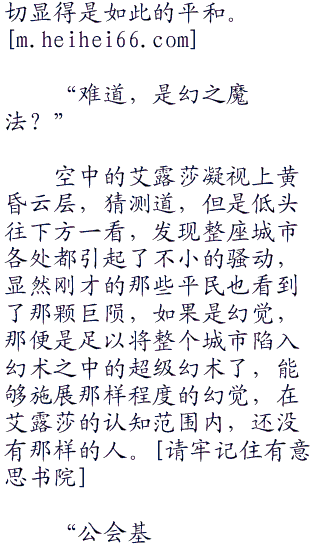 切显得是如此的平和。
[m.heihei66.com]
“难道，是幻之魔
法？”
空中的艾露莎凝视上黄
昏云层，猜测道，但是低头
往下方一看，发现整座城市
各处都引起了不小的骚动，
显然刚才的那些平民也看到
了那颗巨陨，如果是幻觉，
那便是足以将整个城市陷入
幻术之中的超级幻术了，能
够施展那样程度的幻觉，在
艾露莎的认知范围内，还没
有那样的人。[请牢记住有意
思书院]
“公会基